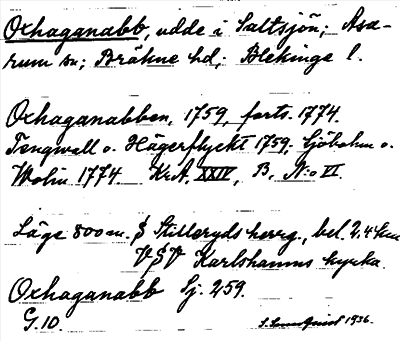 Oxhaganabb, udde i Saltsjön; Asa-
rum sn; Bräkne hd; Blekinge l.
Oxhaganabben, 1759, forts. 1774.
Tengwall o. Hägerflyckt 1759; Sjöbohm o.
Wolin 1774. Kr.A. XXIV, B, N:o VI.
Läge 800 m. S Stilleryds herrg., bel. 2,4 km
VSV Karlshamns kyrka.
Oxhaganabb Sj. 259.
G.10. 1936.